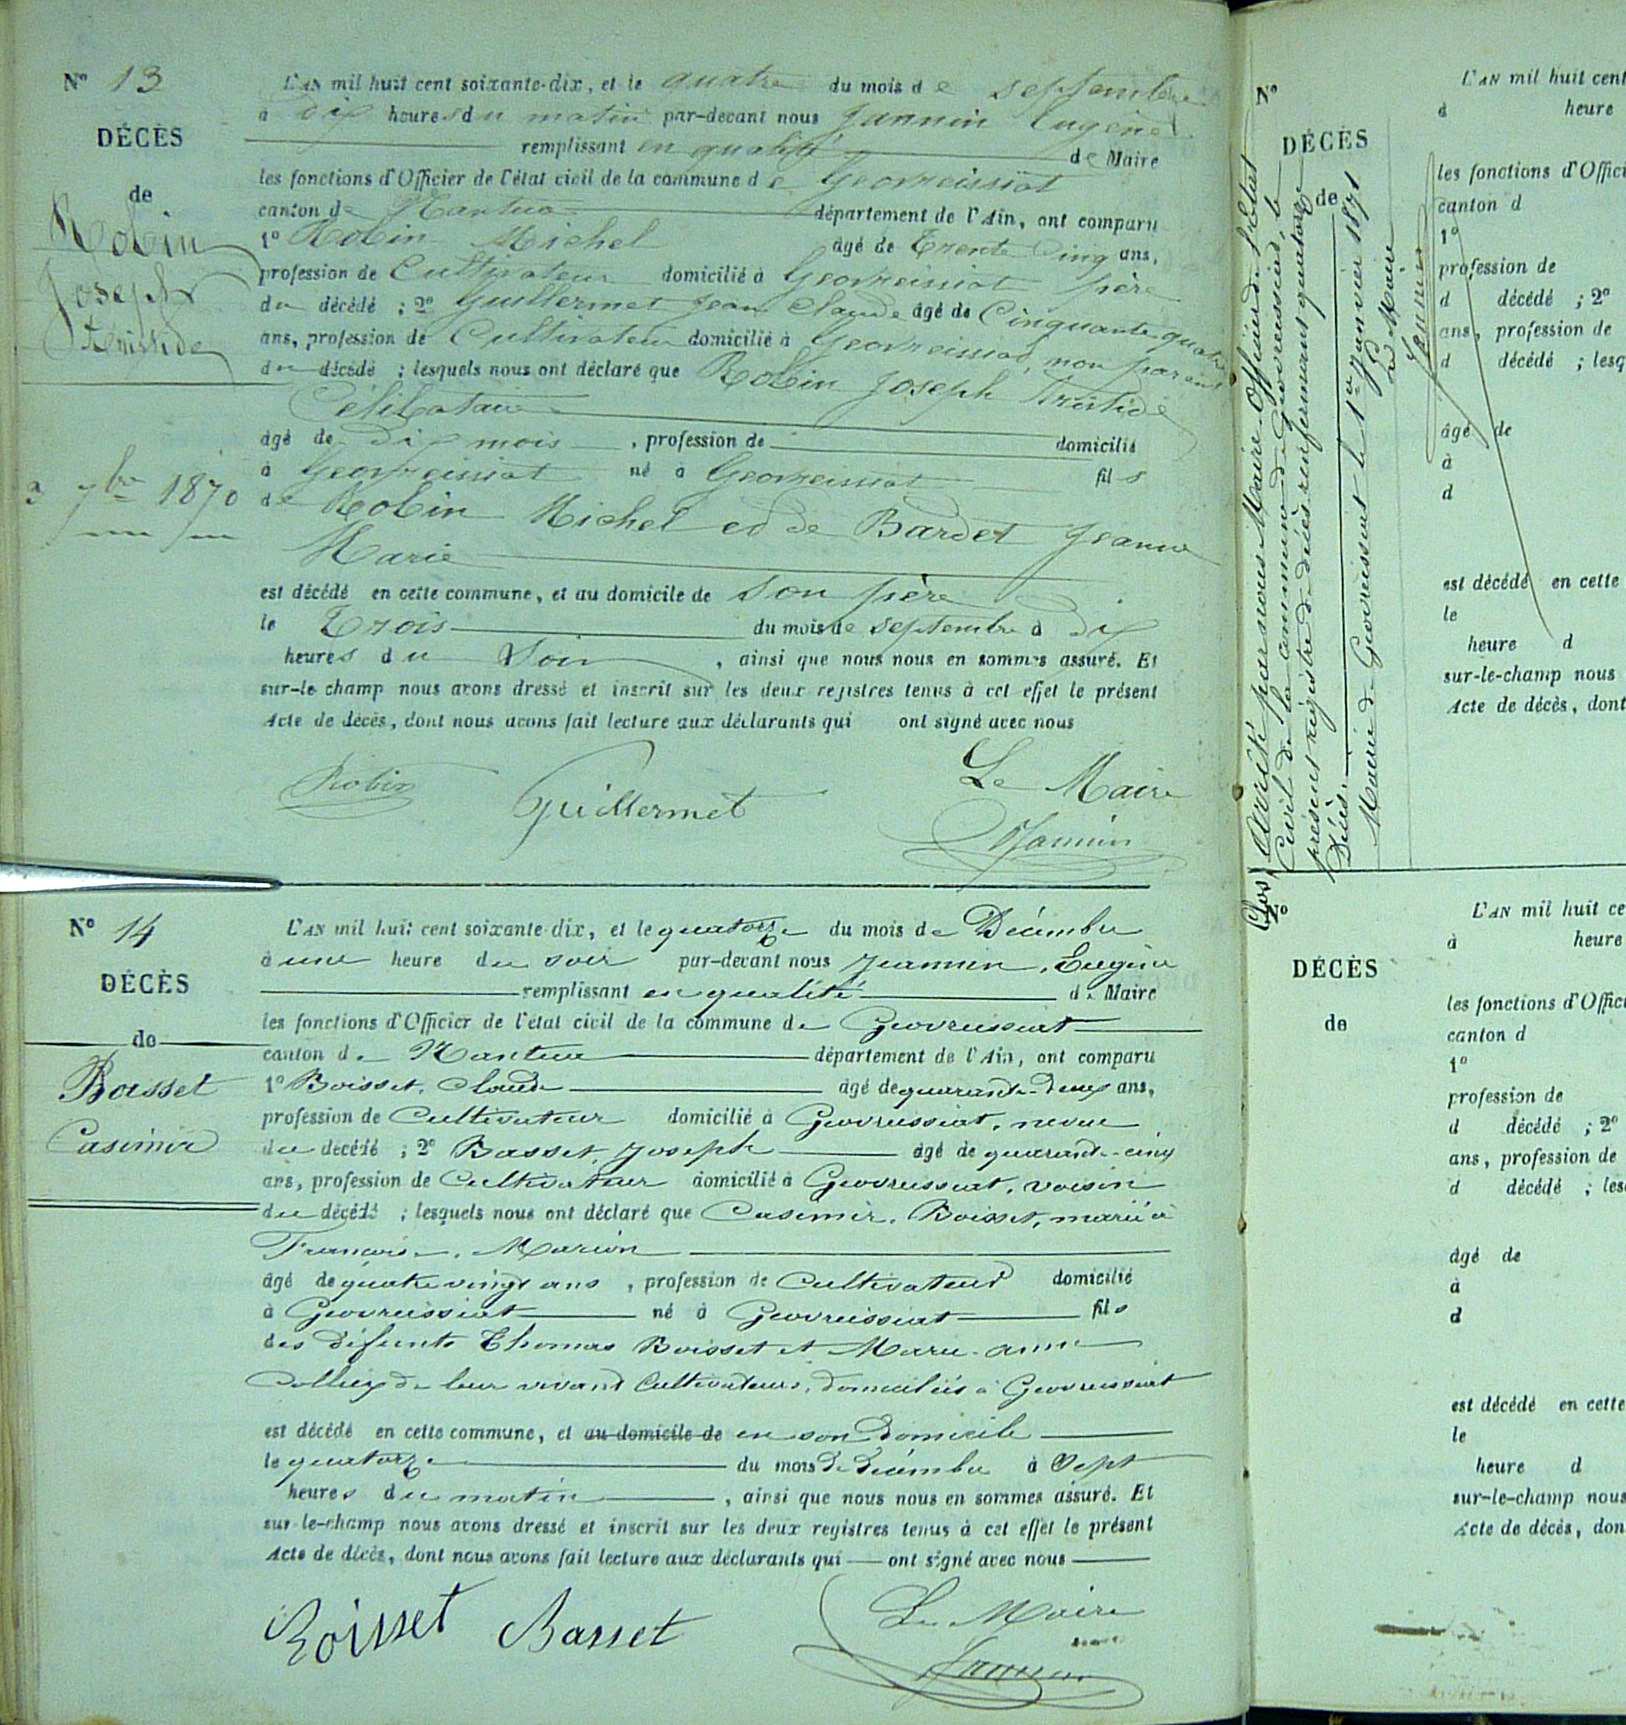 N° 13
DÉCÈS
de
Robin
Joseph
Aristide
3 7bre 1870
L'AN mil huit cent soixante-dix, et le quatre du mois de septembre
à dix heures du matin par-devant nous Jannin Eugène
remplissant en qualité de Maire
les fonctions d'Officier de l'état civil de la commune de Geovreissiat
canton de Nantua département de l'Ain, ont comparu
1° Robin Michel âgé de Trente Cinq ans,
profession de Cultivateur domicilié à Geovreissiat père
du décédé ; 2° Guillermet Jean Claude âgé de Cinquante quatre
ans, profession de Cultivateur domicilié à Geovreissiat, non parent
du décédé ; lesquels nous ont déclaré que Robin Joseph Aristide
Célibataire
âgé de dix mois , profession de domicilié
à Geovreissiat né à Geovreissiat fils
de Robin Michel et de Bardet Jeanne
Marie
est décédé en cette commune, et au domicile de son père
le Trois du mois de septembre à dix
heures du Soir , ainsi que nous nous en sommes assuré. Et
sur-le-champ nous avons dressé et inscrit sur les deux registres tenus à cet effet le présent
Acte de décès, dont nous avons fait lecture aux déclarants qui ont signé avec nous
Robin Guillermet Le Maire
Jannin
N° 14
DÉCÈS
de
Basset
Casimir
L'AN mil huit cent soixante-dix, et le quatorze du mois de Décembre
à une heure du soir par-devant nous Jeannin, Eugène
remplissant en qualité de Maire
les fonctions d'Officier de l'état civil de la commune de Geovreissiat
canton de Nantua département de l'Ain, ont comparu
1° Boisset, Claude âgé de quarante-deux ans,
profession de Cultivateur domicilié à Geovreissiat, neveu
du décédé ; 2° Basset, Joseph âgé de quarante-cinq
ans, profession de Cultivateur domicilié à Geovreissiat, voisin
du décédé ; lesquels nous ont déclaré que Casimir, Boisset, marié à
Françoise, Marion
âgé de quatre vingt ans , profession de Cultivateur domicilié
à Geovreissiat né à Geovreissiat fils
des défunts Thomas Boisset et Marie-anne
Colliex de leur vivant Cultivateurs, domiciliés à Geovreissiat
est décédé en cette commune, et au domicile de en son Domicile
le quatorze du mois de décembre à Sept
heures du matin , ainsi que nous nous en sommes assuré. Et
sur-le-champ nous avons dressé et inscrit sur les deux registres tenus à cet effet le présent
Acte de décès, dont nous avons fait lecture aux déclarants qui ont signé avec nous
Boisset Basset Le Maire
Jannin
N°
DÉCÈS
de
Clos, Arrêté par nous Maire Officier de l'Etat
Civil de la commune de Geovreissiat, le
présent registre de décès renfermant quatorze
Décès.
Mairie de Geovreissiat le 1er Janvier 1871
Le Maire
Jannin
L'AN mil huit cent
à heure
les fonctions d'Offici
canton d
1°
profession de
d décédé ; 2°
ans, profession de
d décédé ; lesq
âgé de
à
d
est décédé en cette
le
heure d
sur-le-champ nous
Acte de décès, dont
N°
DÉCÈS
de
L'AN mil huit ce
à heure
les fonctions d'Offici
canton d
1°
profession de
d décédé ; 2°
ans, profession de
d décédé ; les
âgé de
à
d
est décédé en cette
le
heure d
sur-le-champ nous
Acte de décès, don